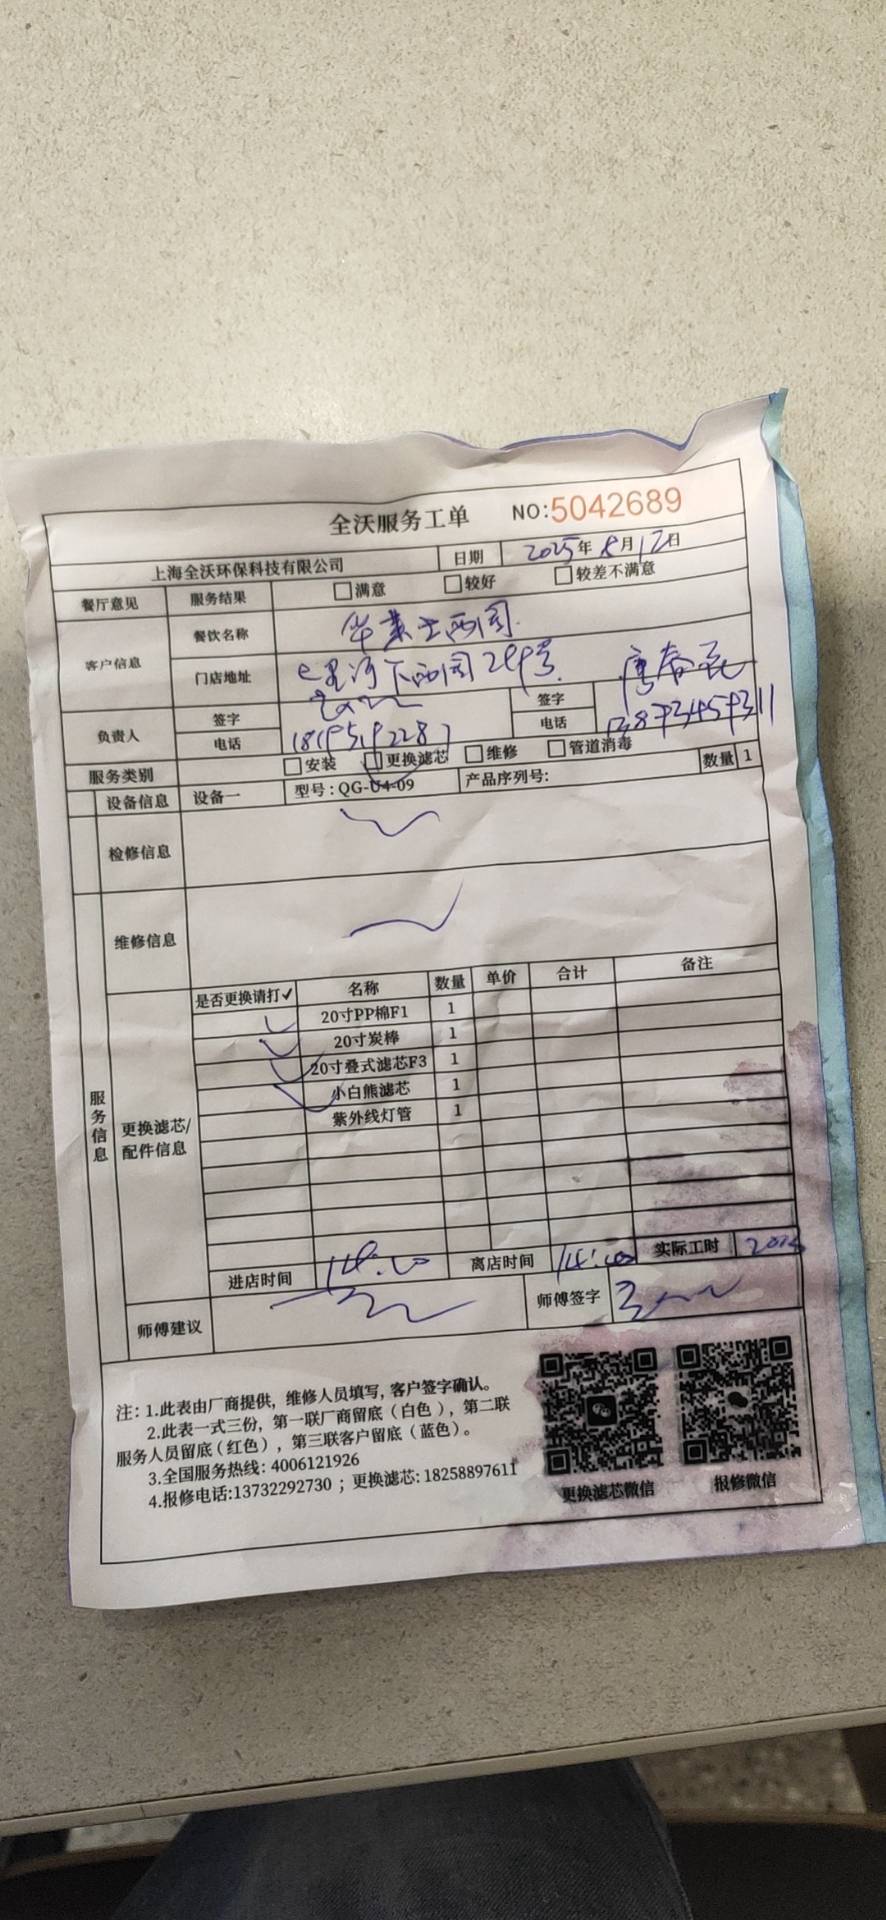 全沃服务工单 NO:5042689
上海全沃环保科技有限公司 日期 2025年8月12日
餐厅意见 服务结果 □满意 □较好 □较差不满意
客户信息 餐饮名称 华莱士西园
门店地址 下西园299号
负责人 签字 签字
电话 电话
服务类别 □安装 □更换滤芯 □维修 □管道消毒
设备信息 设备一 型号:QG-U4-09 产品序列号: 数量 1
检修信息
维修信息
服务信息
更换滤芯/配件信息
是否更换请打✓ 名称 数量 单价 合计 备注
✓ 20寸PP棉F1 1
✓ 20寸炭棒 1
✓ 20寸叠式滤芯F3 1
✓ 小白熊滤芯 1
紫外线灯管 1
进店时间 离店时间 实际工时
师傅建议 师傅签字
注: 1.此表由厂商提供, 维修人员填写, 客户签字确认。
2.此表一式三份, 第一联厂商留底(白色), 第二联
服务人员留底(红色), 第三联客户留底(蓝色)。
3.全国服务热线: 4006121926
4.报修电话:13732292730 ; 更换滤芯: 18258897611
更换滤芯微信 报修微信